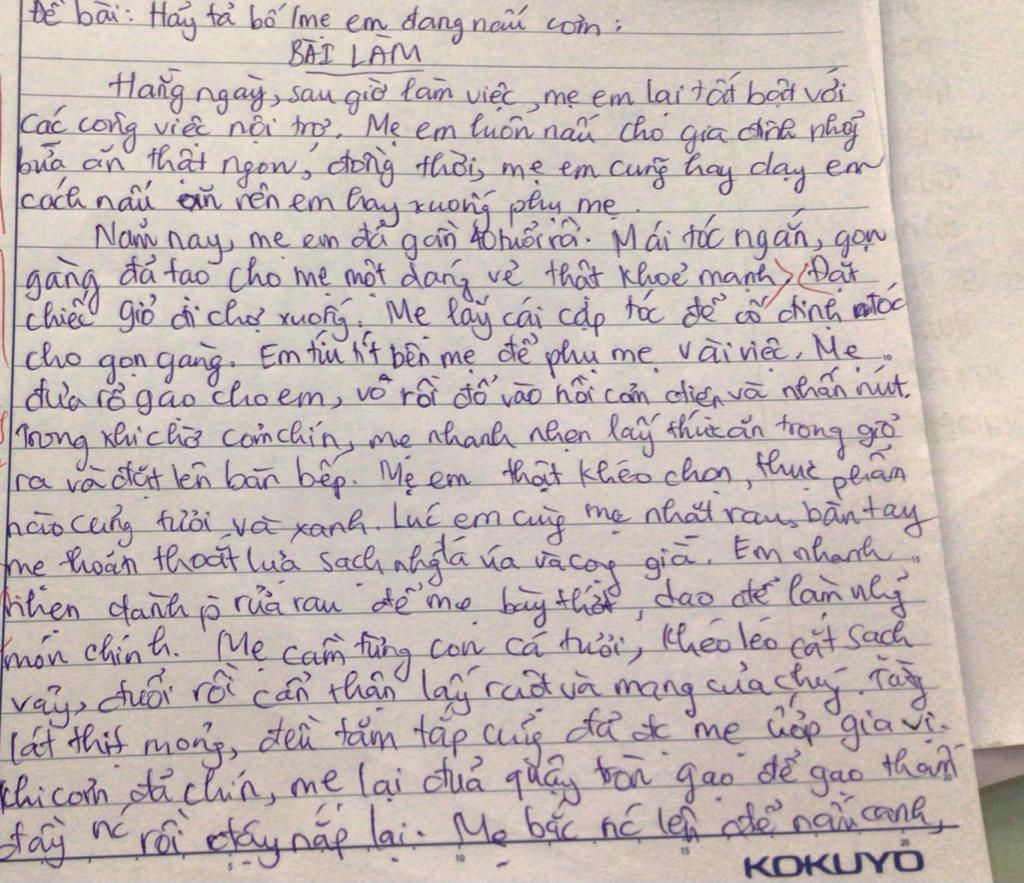 Đề bài: Hãy tả bố/mẹ em đang nấu cơm.
BÀI LÀM
Hằng ngày, sau giờ làm việc, mẹ em lại tất bật với
các công việc nội trợ. Mẹ em luôn nấu cho gia đình những
bữa ăn thật ngon, đồng thời, mẹ em cũng hay dạy em
cách nấu ăn nên em hay xuống phụ mẹ.
Năm nay, mẹ em đã gần 40 tuổi rồi. Mái tóc ngắn, gọn
gàng đã tạo cho mẹ một dáng vẻ thật khoẻ mạnh. Đặt
chiếc giỏ đi chợ xuống. Mẹ lấy cái cặp tóc để cố định tóc
cho gọn gàng. Em tíu tít bên mẹ để phụ mẹ vài việc. Mẹ
đưa rổ gạo cho em, vo rồi đổ vào nồi cơm điện và nhấn nút.
Trong khi chờ cơm chín, mẹ nhanh nhẹn lấy thức ăn trong giỏ
ra và đặt lên bàn bếp. Mẹ em thật khéo chọn, thực phẩm
nào cũng tươi và xanh. Lúc em cùng mẹ nhặt rau, bàn tay
mẹ thoăn thoắt lựa sạch những lá úa và cọng già. Em nhanh
nhẹn dành rửa rau để mẹ bày thớt, dao để làm những
món chính. Mẹ cầm từng con cá tươi, khéo léo cắt sạch
vảy, đuôi rồi cẩn thận lấy ruột và mang của chúng. Từng
lát thịt mỏng, đều tăm tắp cũng đã đc mẹ ướp gia vị.
Khi cơm đã chín, mẹ lại đưa quấy tròn gạo để gạo thấm
đầy nc rồi đậy nắp lại. Mẹ bắc nc lên để nấu canh,
KOKUYO
5 10 15 20